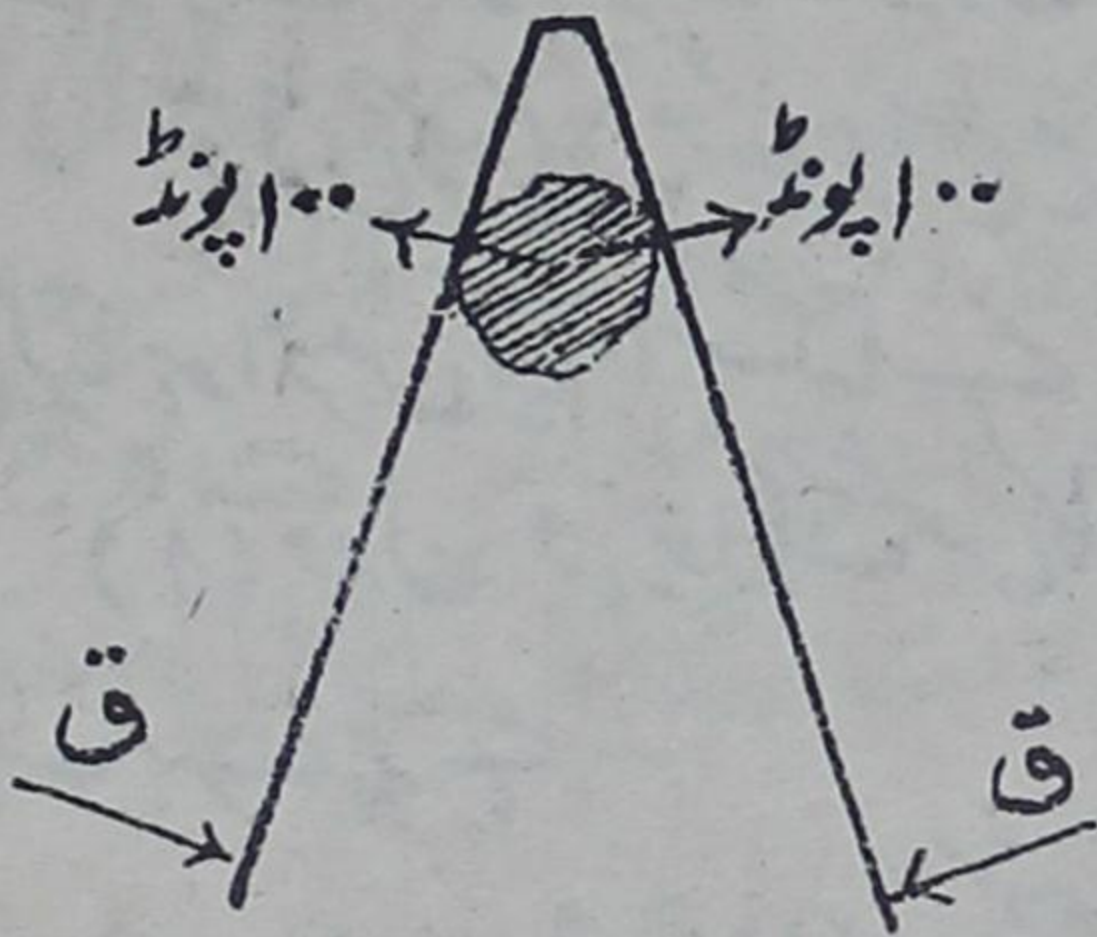 ۱۰۰ پونڈ
۱۰۰ پونڈ
ق
ق